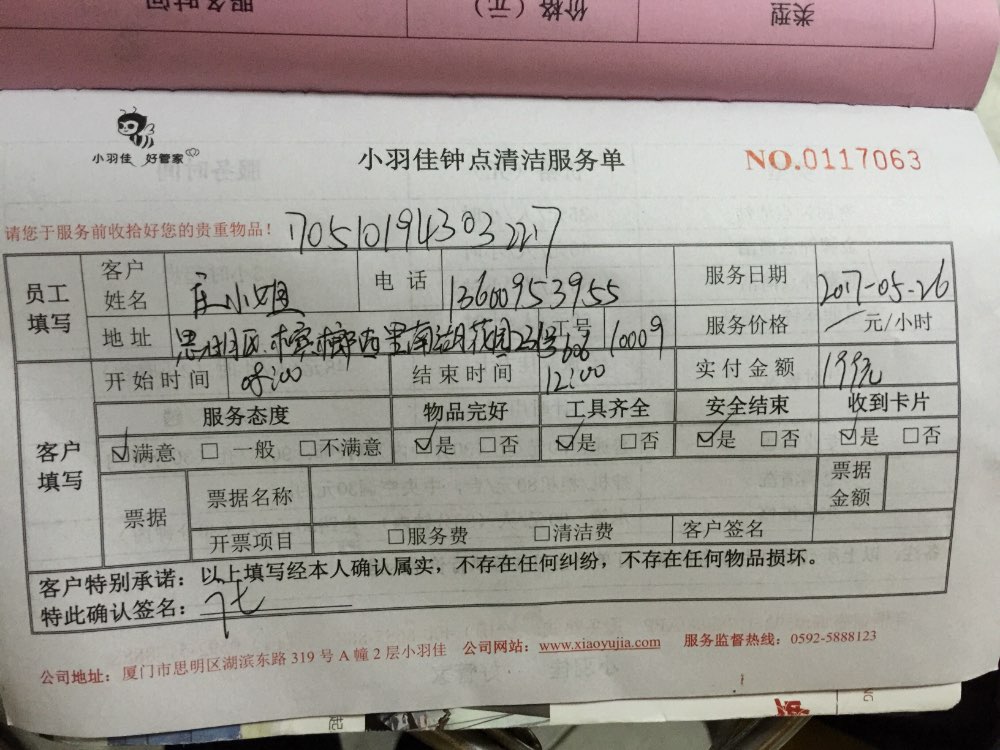 类型 价格（元） 服务时间
小羽佳 好管家
小羽佳钟点清洁服务单
NO.0117063
请您于服务前收拾好您的贵重物品！ 170510194303227
员工填写 客户姓名 庄小姐 电话 13600953955 服务日期 2017-05-26
地址 思明区槟榔西里南湖花园231号606 工号 10009 服务价格 / 元/小时
客户填写 开始时间 08:00 结束时间 12:00 实付金额 199元
服务态度 物品完好 工具齐全 安全结束 收到卡片
☑满意 □一般 □不满意 ☑是 □否 ☑是 □否 ☑是 □否 ☑是 □否
票据 票据名称 票据金额
开票项目 □服务费 □清洁费 客户签名
客户特别承诺：以上填写经本人确认属实，不存在任何纠纷，不存在任何物品损坏。
特此确认签名：
公司地址：厦门市思明区湖滨东路 319 号 A 幢 2 层小羽佳 公司网站：www.xiaoyujia.com 服务监督热线：0592-5888123